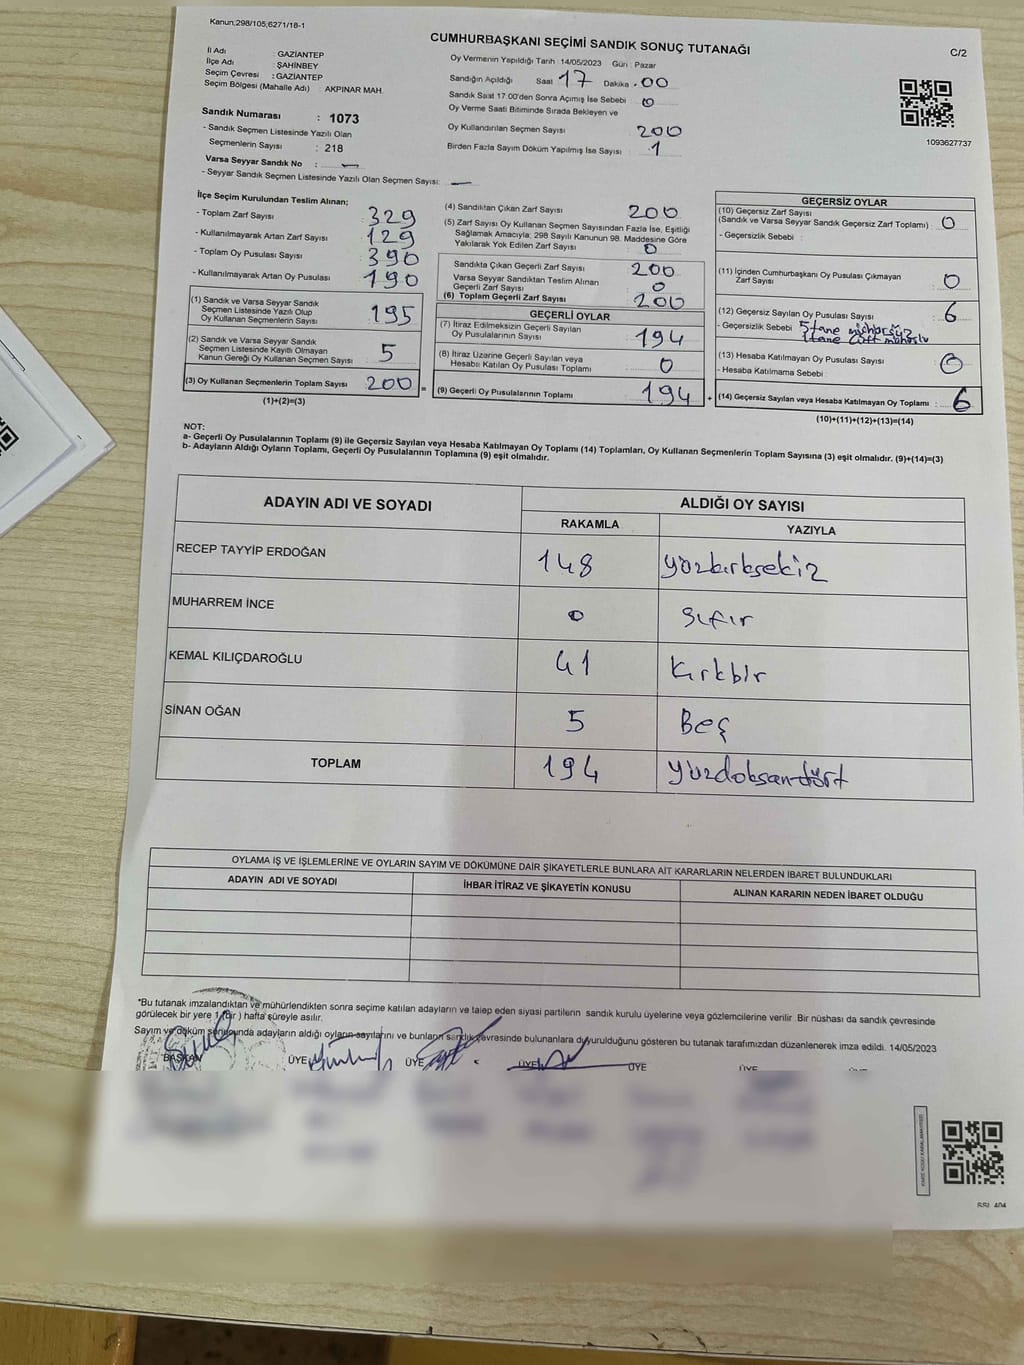 Kanun,298/105,6271/18-1
CUMHURBAŞKANI SEÇİMİ SANDIK SONUÇ TUTANAĞI
C/2
İl Adı : GAZİANTEP
İlçe Adı : ŞAHİNBEY
Seçim Çevresi : GAZİANTEP
Seçim Bölgesi (Mahalle Adı) : AKPINAR MAH.
Oy Vermenin Yapıldığı Tarih : 14/05/2023 Gün : Pazar
Sandığın Açıldığı Saat 17 Dakika . 00
Sandık Saat 17:00'den Sonra Açımış İse Sebebi 0
Oy Verme Saati Bitiminde Sırada Bekleyen ve
Oy Kullandırılan Seçmen Sayısı 200
Birden Fazla Sayım Döküm Yapılmış İse Sayısı . 1
1093627737
Sandık Numarası : 1073
- Sandık Seçmen Listesinde Yazılı Olan
Seçmenlerin Sayısı : 218
Varsa Seyyar Sandık No : —
- Seyyar Sandık Seçmen Listesinde Yazılı Olan Seçmen Sayısı: —
İlçe Seçim Kurulundan Teslim Alınan;
- Toplam Zarf Sayısı 329
- Kullanılmayarak Artan Zarf Sayısı 129
- Toplam Oy Pusulası Sayısı 390
- Kullanılmayarak Artan Oy Pusulası 190
(1) Sandık ve Varsa Seyyar Sandık
Seçmen Listesinde Yazılı Olup
Oy Kullanan Seçmenlerin Sayısı 195
(2) Sandık ve Varsa Seyyar Sandık
Seçmen Listesinde Kayıtlı Olmayan
Kanun Gereği Oy Kullanan Seçmen Sayısı 5
(3) Oy Kullanan Seçmenlerin Toplam Sayısı 200 =
(1)+(2)=(3)
(4) Sandıktan Çıkan Zarf Sayısı 200
(5) Zarf Sayısı Oy Kullanan Seçmen Sayısından Fazla İse, Eşitliği
Sağlamak Amacıyla; 298 Sayılı Kanunun 98. Maddesine Göre
Yakılarak Yok Edilen Zarf Sayısı 0
Sandıkta Çıkan Geçerli Zarf Sayısı 200
Varsa Seyyar Sandıktan Teslim Alınan
Geçerli Zarf Sayısı 0
(6) Toplam Geçerli Zarf Sayısı 200
GEÇERLİ OYLAR
(7) İtiraz Edilmeksizin Geçerli Sayılan
Oy Pusulalarının Sayısı 194
(8) İtiraz Üzerine Geçerli Sayılan veya
Hesabı Katılan Oy Pusulası Toplamı 0
(9) Geçerli Oy Pusulalarının Toplamı 194 +
GEÇERSİZ OYLAR
(10) Geçersiz Zarf Sayısı
(Sandık ve Varsa Seyyar Sandık Geçersiz Zarf Toplamı) : 0
- Geçersizlik Sebebi :
(11) İçinden Cumhurbaşkanı Oy Pusulası Çıkmayan
Zarf Sayısı 0
(12) Geçersiz Sayılan Oy Pusulası Sayısı 6
- Geçersizlik Sebebi 5 tane mühürsüz
1 tane çift mühürlü
(13) Hesaba Katılmayan Oy Pusulası Sayısı 0
- Hesaba Katılmama Sebebi :
(14) Geçersiz Sayılan veya Hesaba Katılmayan Oy Toplamı : 6
(10)+(11)+(12)+(13)=(14)
NOT:
a- Geçerli Oy Pusulalarının Toplamı (9) ile Geçersiz Sayılan veya Hesaba Katılmayan Oy Toplamı (14) Toplamları, Oy Kullanan Seçmenlerin Toplam Sayısına (3) eşit olmalıdır. (9)+(14)=(3)
b- Adayların Aldığı Oyların Toplamı, Geçerli Oy Pusulalarının Toplamına (9) eşit olmalıdır.
ADAYIN ADI VE SOYADI
ALDIĞI OY SAYISI
RAKAMLA YAZIYLA
RECEP TAYYİP ERDOĞAN 148 yüzkırksekiz
MUHARREM İNCE 0 Sıfır
KEMAL KILIÇDAROĞLU 41 Kırkbir
SİNAN OĞAN 5 Beş
TOPLAM 194 yüzdoksandört
OYLAMA İŞ VE İŞLEMLERİNE VE OYLARIN SAYIM VE DÖKÜMÜNE DAİR ŞİKAYETLERLE BUNLARA AİT KARARLARIN NELERDEN İBARET BULUNDUKLARI
ADAYIN ADI VE SOYADI İHBAR İTİRAZ VE ŞİKAYETİN KONUSU ALINAN KARARIN NEDEN İBARET OLDUĞU
*Bu tutanak imzalandıktan ve mühürlendikten sonra seçime katılan adayların ve talep eden siyasi partilerin sandık kurulu üyelerine veya gözlemcilerine verilir .Bir nüshası da sandık çevresinde
görülecek bir yere 1 (bir ) hafta süreyle asılır.
Sayım ve döküm sonucunda adayların aldığı oyların sayılarını ve bunların sandık çevresinde bulunanlara duyurulduğunu gösteren bu tutanak tarafımızdan düzenlenerek imza edildi. 14/05/2023
BAŞKAN ÜYE ÜYE ÜYE ÜYE ÜYE